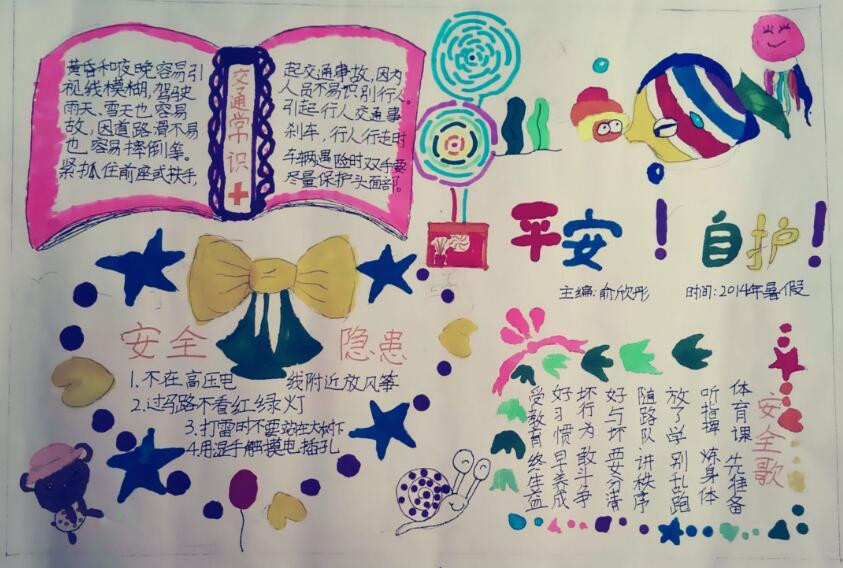 黄昏和夜晚容易引
视线模糊,驾驶
雨天、雪天也容易
故,因道路滑不易
也容易摔倒等。
紧抓住前座或扶手,
交通常识
起交通事故,因为
人员不易识别行人。
引起行人交通事
刹车,行人行走时
车辆遇险时双手要
尽量保护头面部。
平安!自护!
主编:俞欣彤 时间:2014年暑假
安全隐患
1.不在高压电 线附近放风筝
2.过马路不看红绿灯
3.打雷时不要站在大树下
4.用湿手触摸电插孔
安全歌
体育课 先准备
听指挥 炼身体
放了学 别乱跑
随路队 讲秩序
好与坏 要分清
坏行为 敢斗争
好习惯 早养成
受教育 终生益